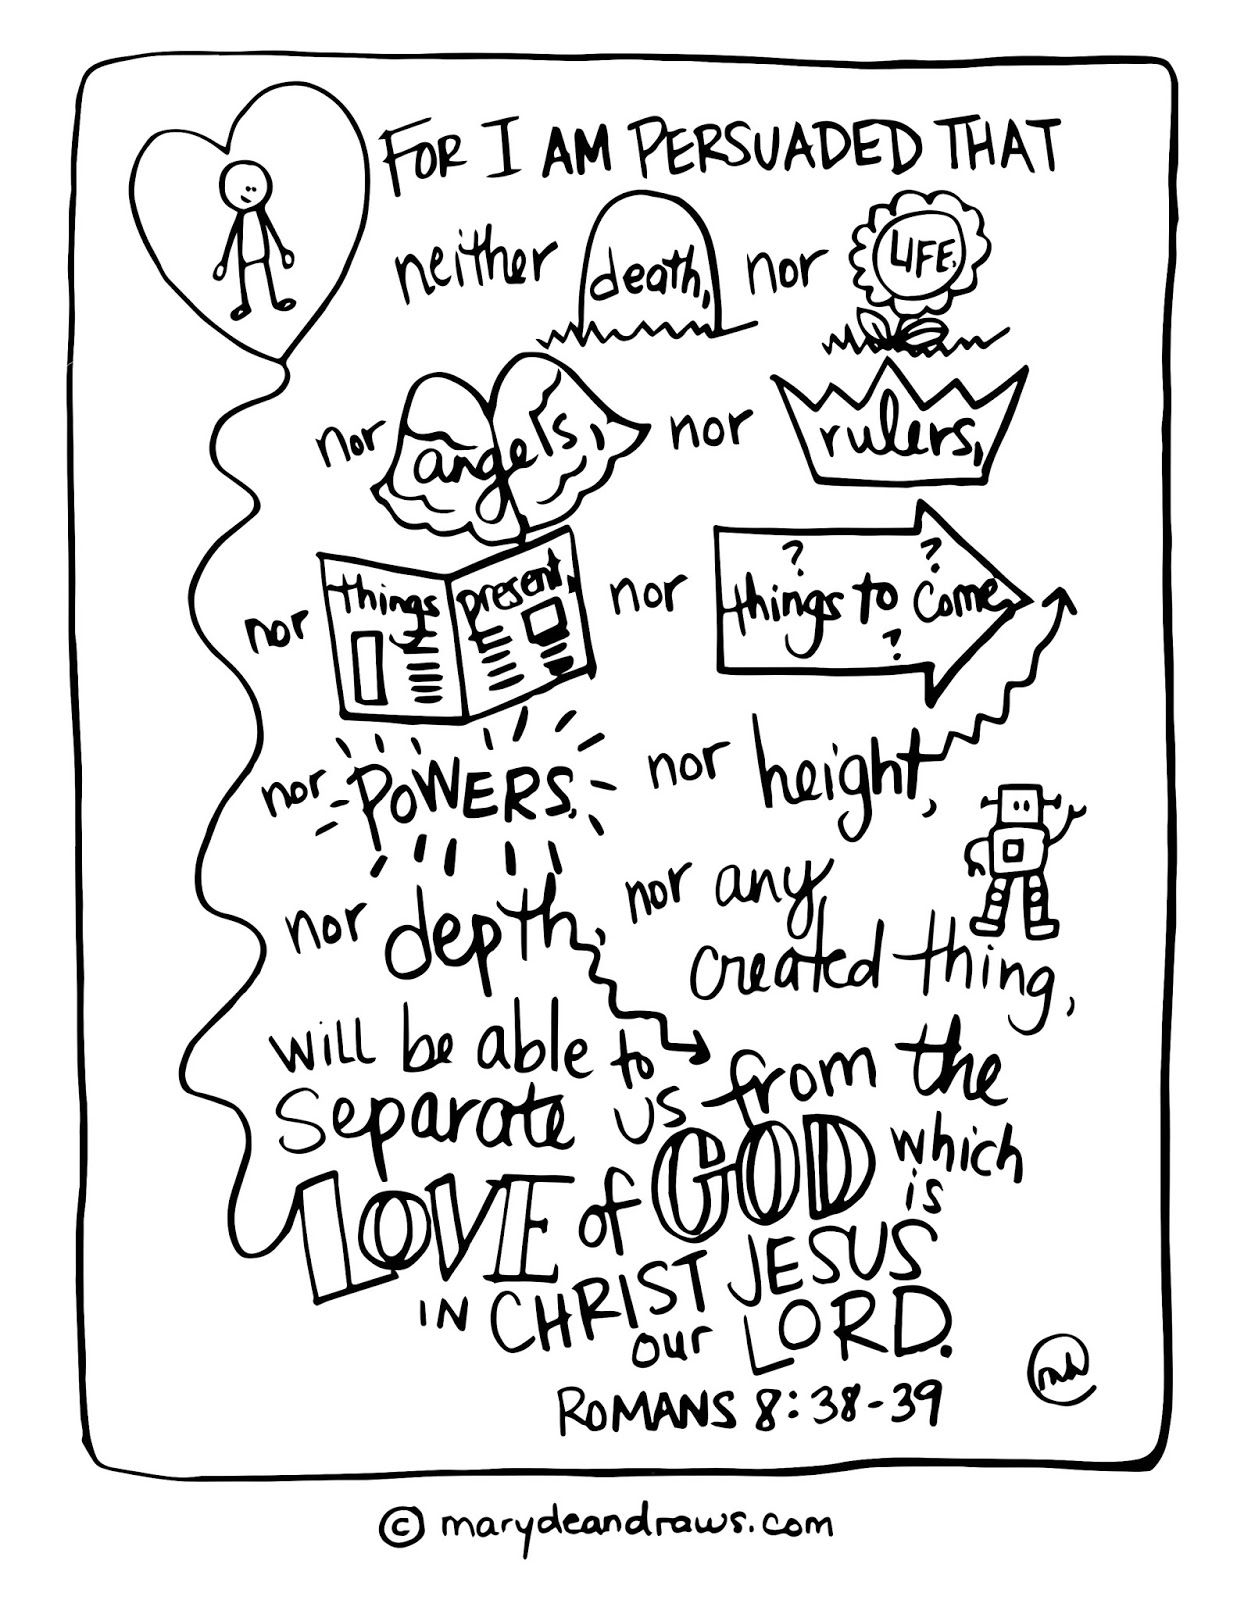 FOR I AM PERSUADED THAT
neither death, nor LIFE,
nor angels, nor rulers,
nor things present, nor things to come,
? ? ?
nor POWERS, nor height,
nor depth, nor any
created thing,
will be able to
separate us from the
LOVE of GOD which
is
IN CHRIST JESUS
our LORD.
ROMANS 8:38-39
© marydeandraws.com